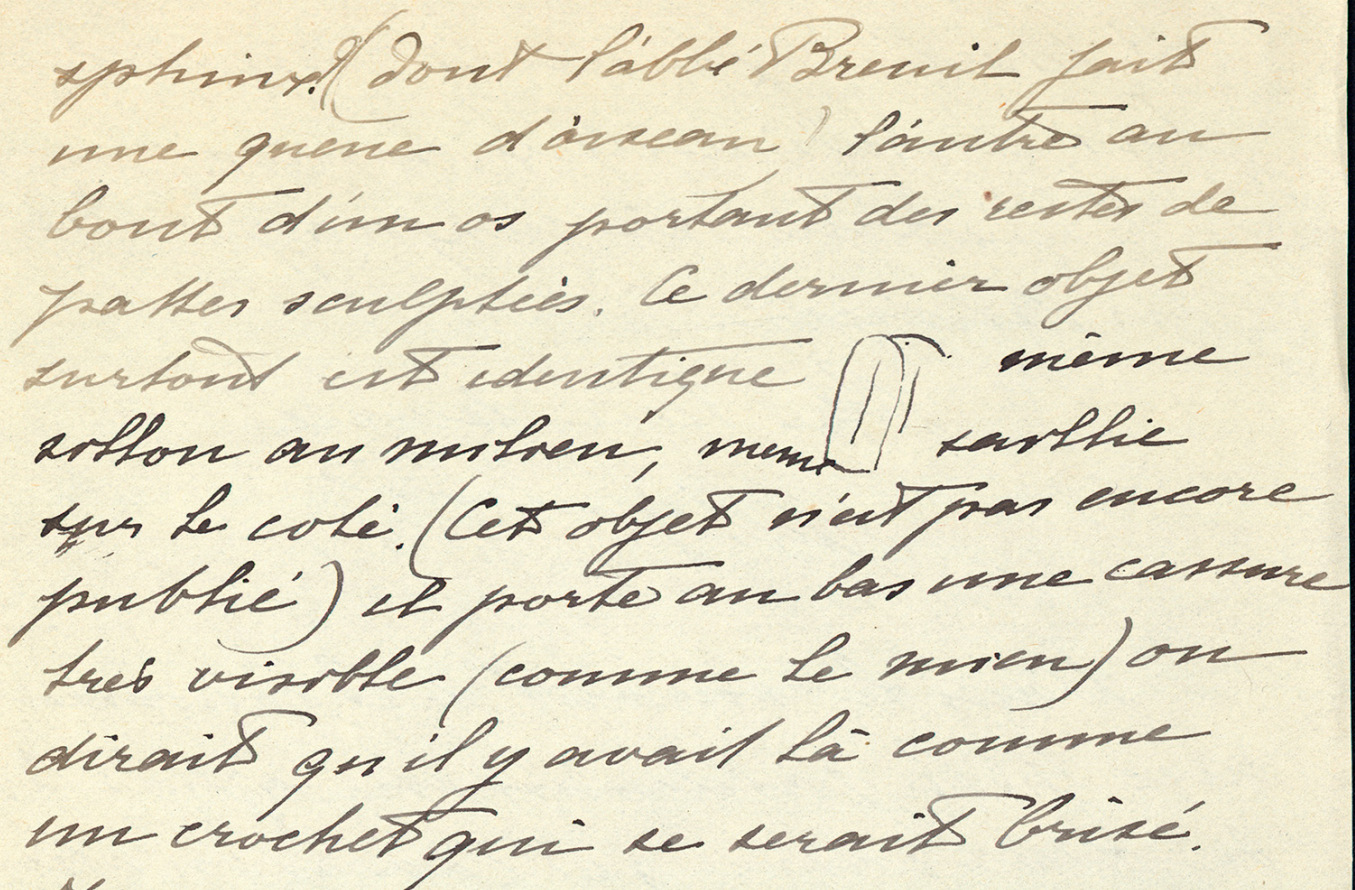 sphinx. (dont l'abbé Breuil fait
une queue d'oiseau) l'autre au
bout d'un os portant des restes de
pattes sculptées. Ce dernier objet
surtout est identique même
sillon au milieu, meme saillie
sur le coté. (Cet objet n'est pas encore
publié) il porte au bas une cassure
très visible (comme le mien) on
dirait qu'il y avait là comme
un crochet qui se serait brisé.